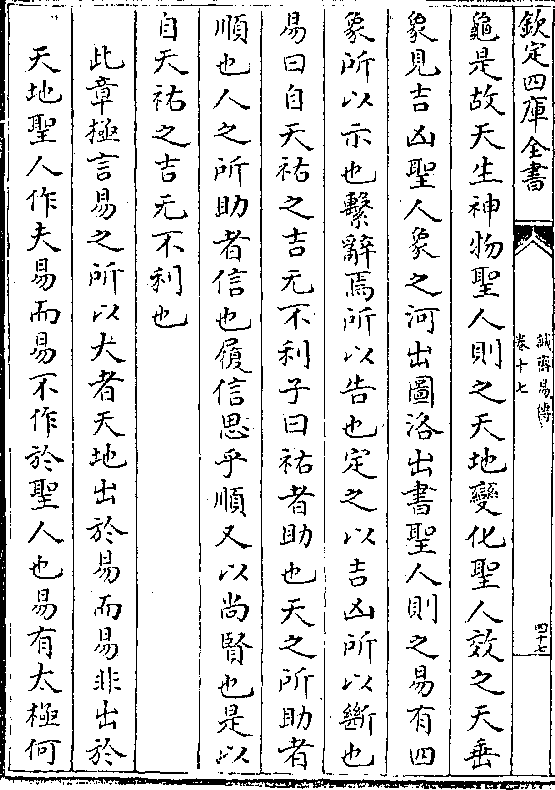 欽定四庫全書
誠齋易傳
卷十七
四十七
龜是故天生神物聖人則之天地變化聖人效之天垂
象見吉凶聖人象之河出圖洛出書聖人則之易有四
象所以示也繫辭焉所以告也定之以吉凶所以斷也
易曰自天祐之吉无不利子曰祐者助也天之所助者
順也人之所助者信也履信思乎順又以尚賢也是以
自天祐之吉无不利也
此章極言易之所以大者天地出於易而易非出於
天地聖人作夫易而易不作於聖人也易有太極何